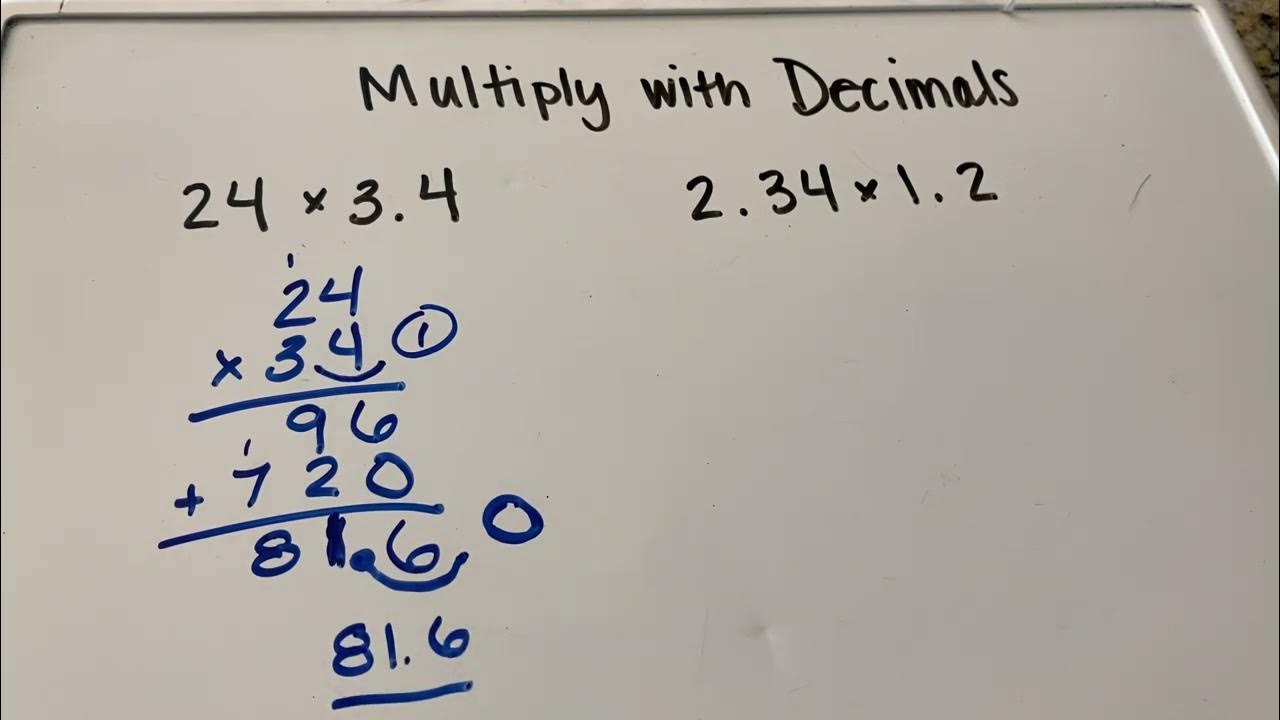 Multiply with Decimals
24 × 3.4
1
24
× 34 1
96
1
+ 720
81.6 0
81.6
2.34 × 1.2